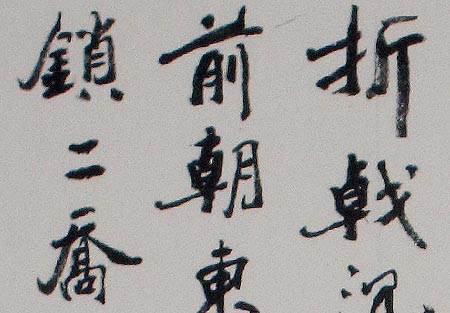 折戟
前朝東
鎖二喬